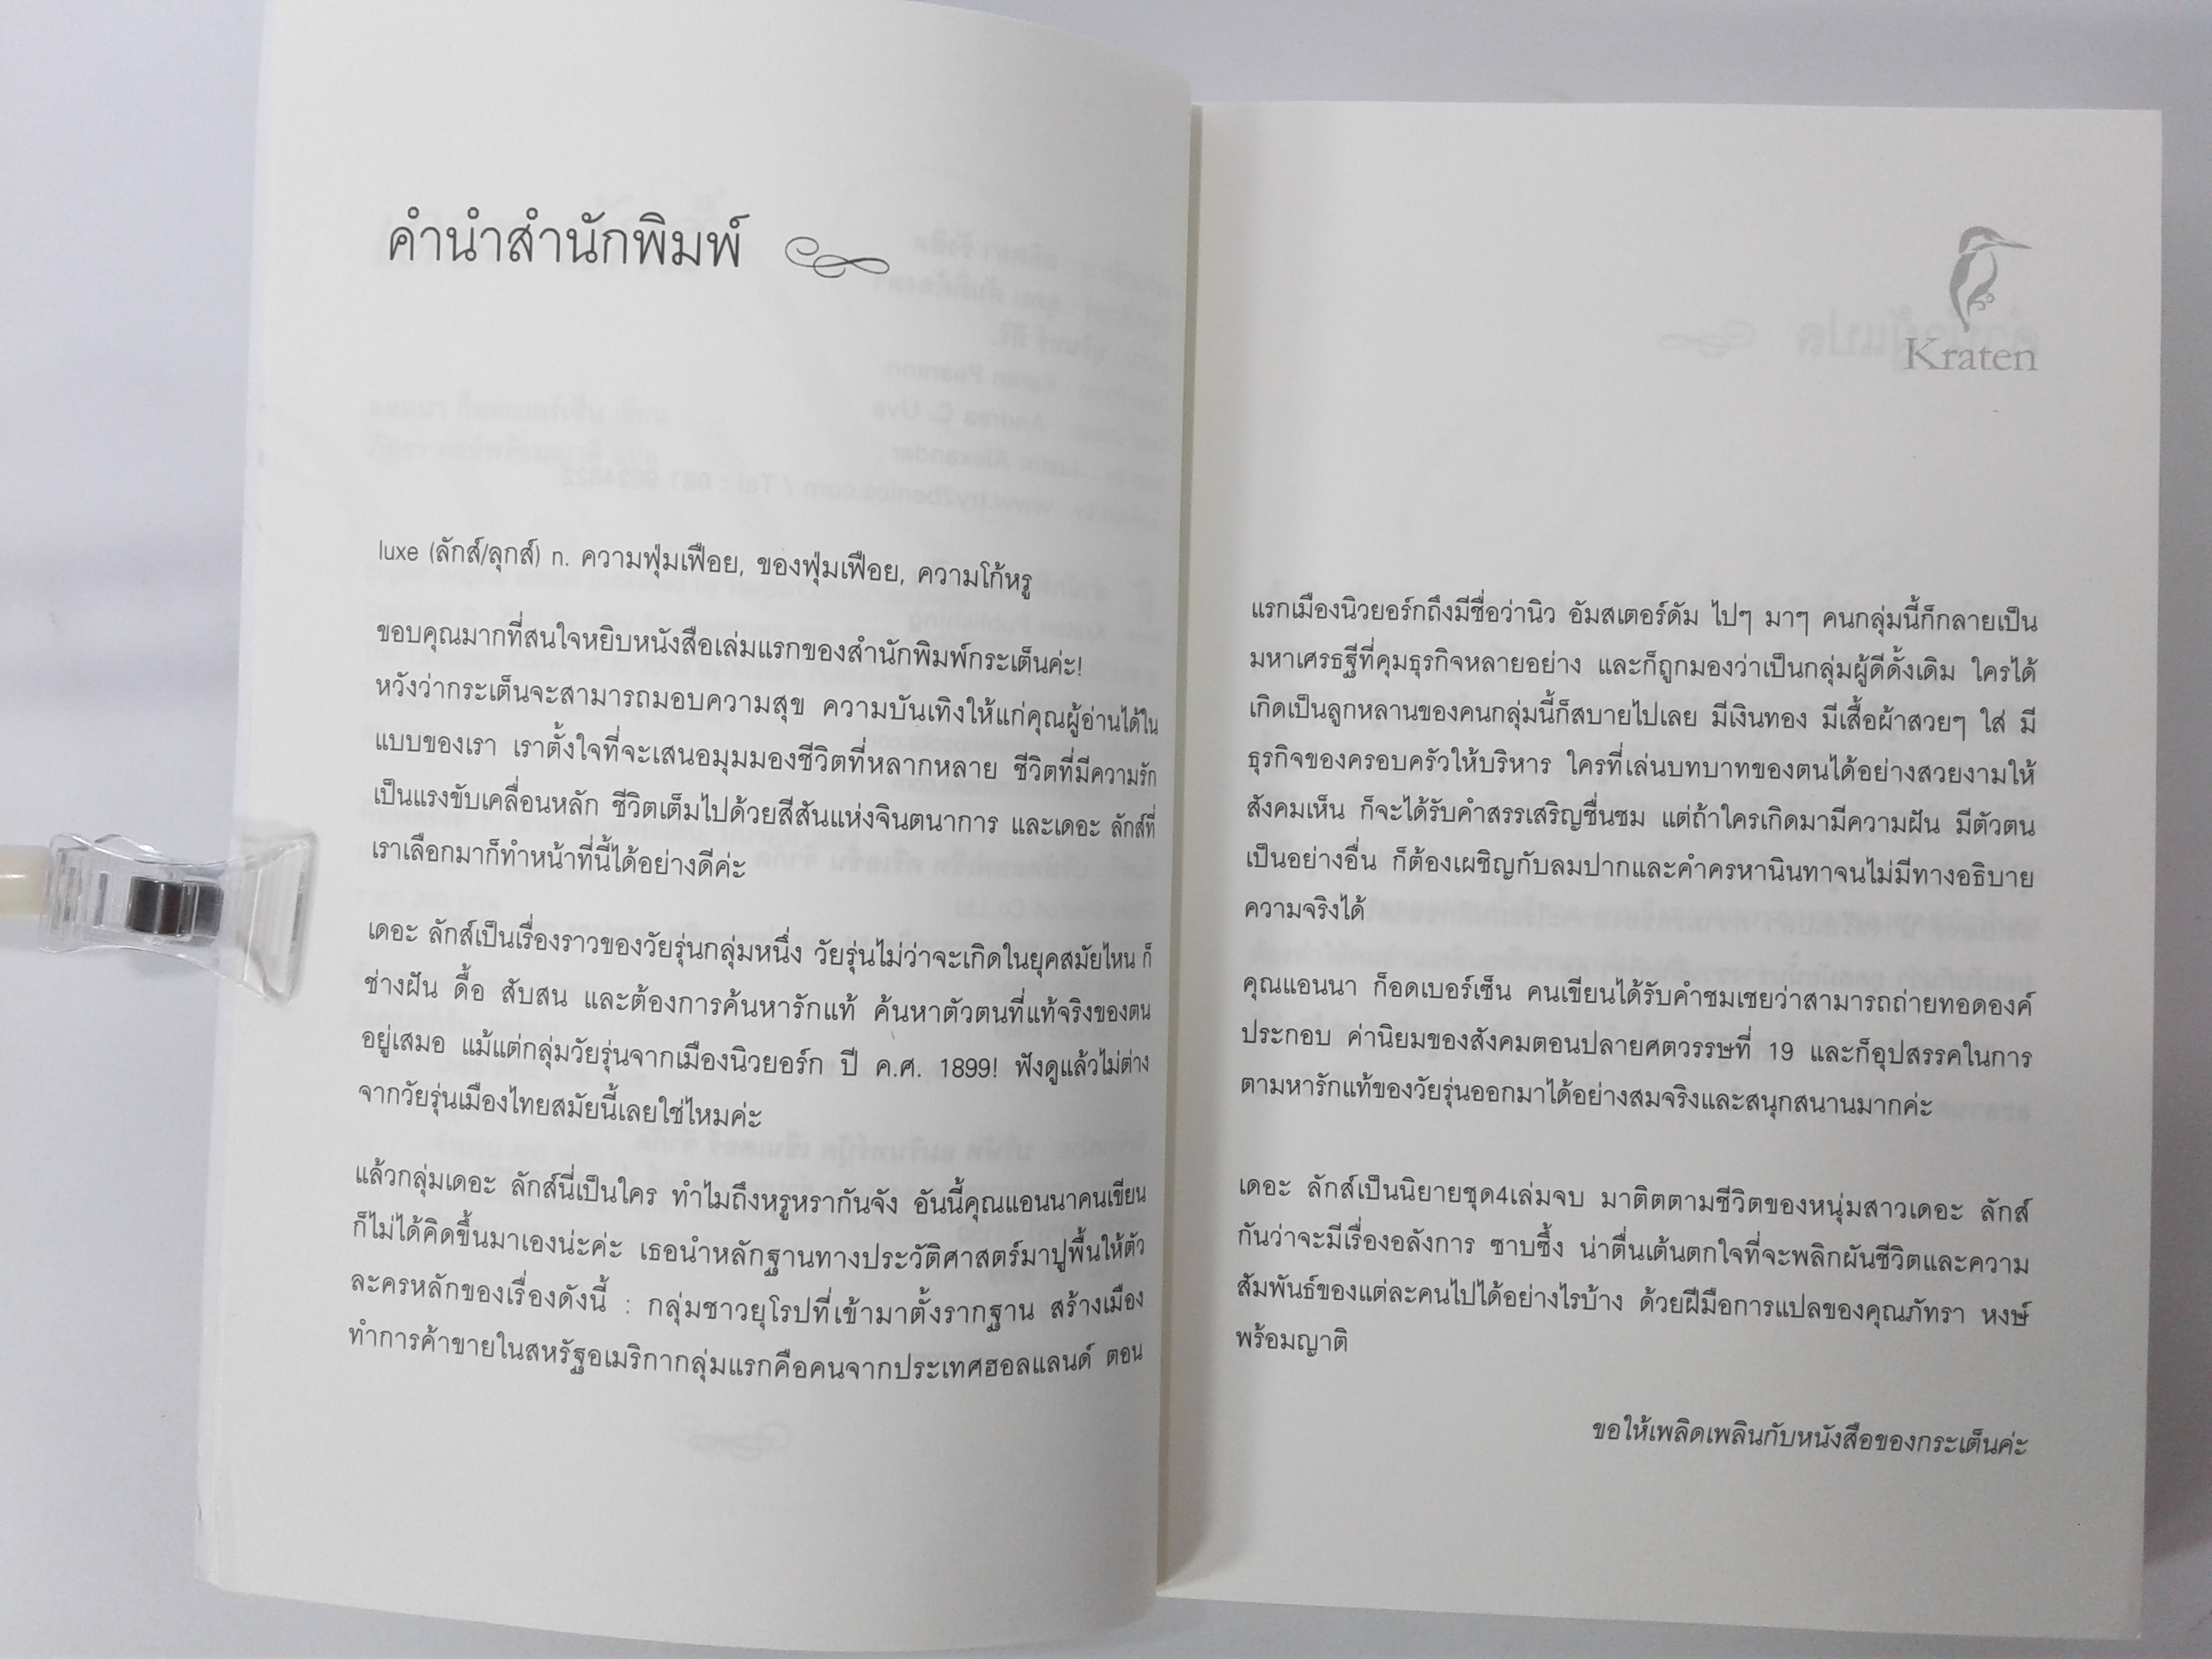 คำนำสำนักพิมพ์
luxe (ลักส์/ลุกส์) n. ความฟุ่มเฟือย, ของฟุ่มเฟือย, ความโก้หรู
ขอบคุณมากที่สนใจหยิบหนังสือเล่มแรกของสำนักพิมพ์กระเต็นค่ะ!
หวังว่ากระเต็นจะสามารถมอบความสุข ความบันเทิงให้แก่คุณผู้อ่านได้ใน
แบบของเรา เราตั้งใจที่จะเสนอมุมมองชีวิตที่หลากหลาย ชีวิตที่มีความรัก
เป็นแรงขับเคลื่อนหลัก ชีวิตเต็มไปด้วยสีสันแห่งจินตนาการ และเดอะ ลักส์ที่
เราเลือกมาก็ทำหน้าที่นี้ได้อย่างดีค่ะ
เดอะ ลักส์เป็นเรื่องราวของวัยรุ่นกลุ่มหนึ่ง วัยรุ่นไม่ว่าจะเกิดในยุคสมัยไหน ก็
ช่างฝัน ดื้อ สับสน และต้องการค้นหารักแท้ ค้นหาตัวตนที่แท้จริงของตน
อยู่เสมอ แม้แต่กลุ่มวัยรุ่นจากเมืองนิวยอร์ก ปี ค.ศ. 1899! ฟังดูแล้วไม่ต่าง
จากวัยรุ่นเมืองไทยสมัยนี้เลยใช่ไหมค่ะ
แล้วกลุ่มเดอะ ลักส์นี่เป็นใคร ทำไมถึงหรูหรากันจัง อันนี้คุณแอนนาคนเขียน
ก็ไม่ได้คิดขึ้นมาเองน่ะค่ะ เธอนำหลักฐานทางประวัติศาสตร์มาปูพื้นให้ตัว
ละครหลักของเรื่องดังนี้ : กลุ่มชาวยุโรปที่เข้ามาตั้งรากฐาน สร้างเมือง
ทำการค้าขายในสหรัฐอเมริกากลุ่มแรกคือคนจากประเทศฮอลแลนด์ ตอน
Kraten
แรกเมืองนิวยอร์กถึงมีชื่อว่านิว อัมสเตอร์ดัม ไปๆ มาๆ คนกลุ่มนี้ก็กลายเป็น
มหาเศรธฐีที่คุมธุรกิจหลายอย่าง และก็ถูกมองว่าเป็นกลุ่มผู้ดีดั้งเดิม ใครได้
เกิดเป็นลูกหลานของคนกลุ่มนี้ก็สบายไปเลย มีเงินทอง มีเสื้อผ้าสวยๆ ใส่ มี
ธุรกิจของครอบครัวให้บริหาร ใครที่เล่นบทบาทของตนได้อย่างสวยงามให้
สังคมเห็น ก็จะได้รับคำสรรเสริญชื่นชม แต่ถ้าใครเกิดมามีความฝัน มีตัวตน
เป็นอย่างอื่น ก็ต้องเผชิญกับลมปากและคำครหานินทาจนไม่มีทางอธิบาย
ความจริงได้
คุณแอนนา ก็อดเบอร์เซ็น คนเขียนได้รับคำชมเชยว่าสามารถถ่ายทอดองค์
ประกอบ ค่านิยมของสังคมตอนปลายศตวรรษที่ 19 และก็อุปสรรคในการ
ตามหารักแท้ของวัยรุ่นออกมาได้อย่างสมจริงและสนุกสนานมากค่ะ
เดอะ ลักส์เป็นนิยายชุด4เล่มจบ มาติดตามชีวิตของหนุ่มสาวเดอะ ลักส์
กันว่าจะมีเรื่องอลังการ ซาบซึ้ง น่าตื่นเต้นตกใจที่จะพลิกผันชีวิตและความ
สัมพันธ์ของแต่ละคนไปได้อย่างไรบ้าง ด้วยฝีมือการแปลของคุณภัทรา หงษ์
พร้อมญาติ
ขอให้เพลิดเพลินกับหนังสือของกระเต็นค่ะ